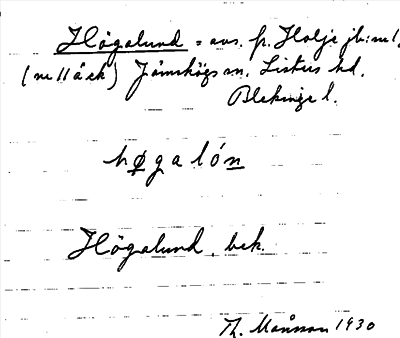 Högalund = avs. fr. Holje jb: nr 1,
(nr 11 á ek) Jämshögs sn, Listers hd,
Blekinge l.
høgalón
Högalund, bek.
Th. Månsson 1930